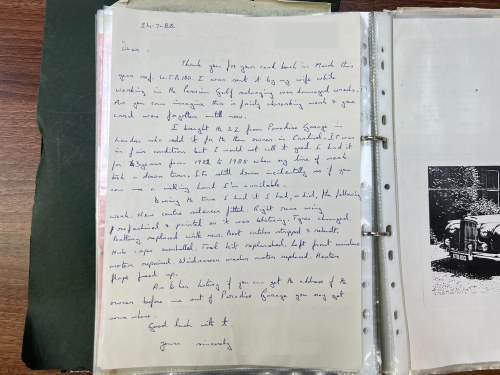 24-7-88
Dear ,
Thank you for your card back in March this
year ref. I was sent it by my wife while
working in the Persian Gulf salvaging war damaged vessels.
As you can imagine this is fairly absorbing work & your
card was forgotten until now.
I bought the from Paradise Garage in
London who sold it for the then owner in . It was
in fair condition but I would not call it good. I had it
for 3 years from 1982 to 1985 when my line of work
took a down turn. Its still down incidentally so if you
can use a willing hand I'm available.
During the time I had it I had, did, the following
work. New centre silencer fitted. Right rear wing
& painted as it was blistering. Tyres changed.
Battery replaced with new. Boot catches stripped & rebuilt.
Hub caps . Tool kit replenished. Left front window
motor repaired. Windscreen washer motor replaced. Heater
flaps freed up.
As to her history if you can get the address of the
owner before me out of Paradise Garage you may get
some more.
Good luck with it
yours sincerely